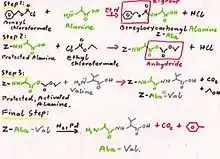 Step 1:
Et₃N
Z-group
+ HCl
Benzyl
chloroformate
Alanine
Benzyloxycarbonyl Alanine
Z-Ala
Step 2:
Z-NH
+ HCl
Protected Alanine
Ethyl
chloroformate
Anhydride
Step 3:
Z-NH
Valine
Z-Ala-Val
+ CO₂
Protected, Activated
Alanine.
Final Step:
Z-Ala-Val
H₂, Pd
H₂N
+ CO₂ +
Ala-Val